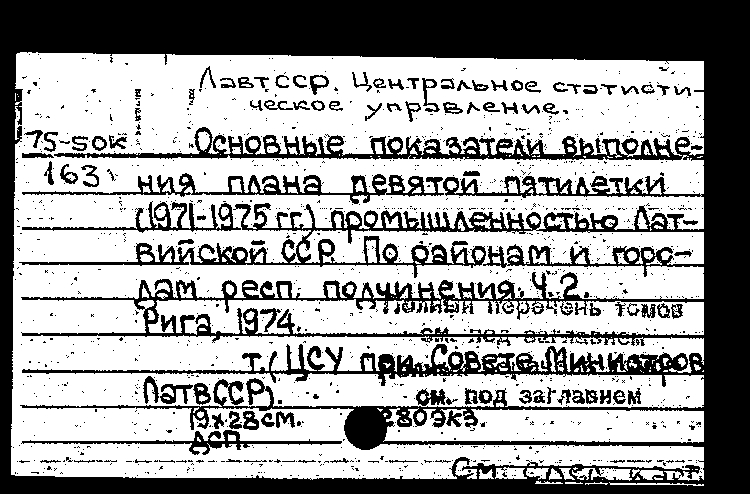 ЛавтССР. Центральное статисти-
ческое управление.
75-5ок Основные показатели выполне-
163 ния плана девятой пятилетки
(1971-1975 гг.) промышленностью Лат-
вийской ССР. По районам и горо-
дам респ. подчинения. Ч. 2.
Полный перечень томов
Рига, 1974.
см. под заглавием
т. (ЦСУ при Совете Министров
ЛатвССР).
см. под заглавием
19х28см. 280экз.
ДСП.
См. след. карт.